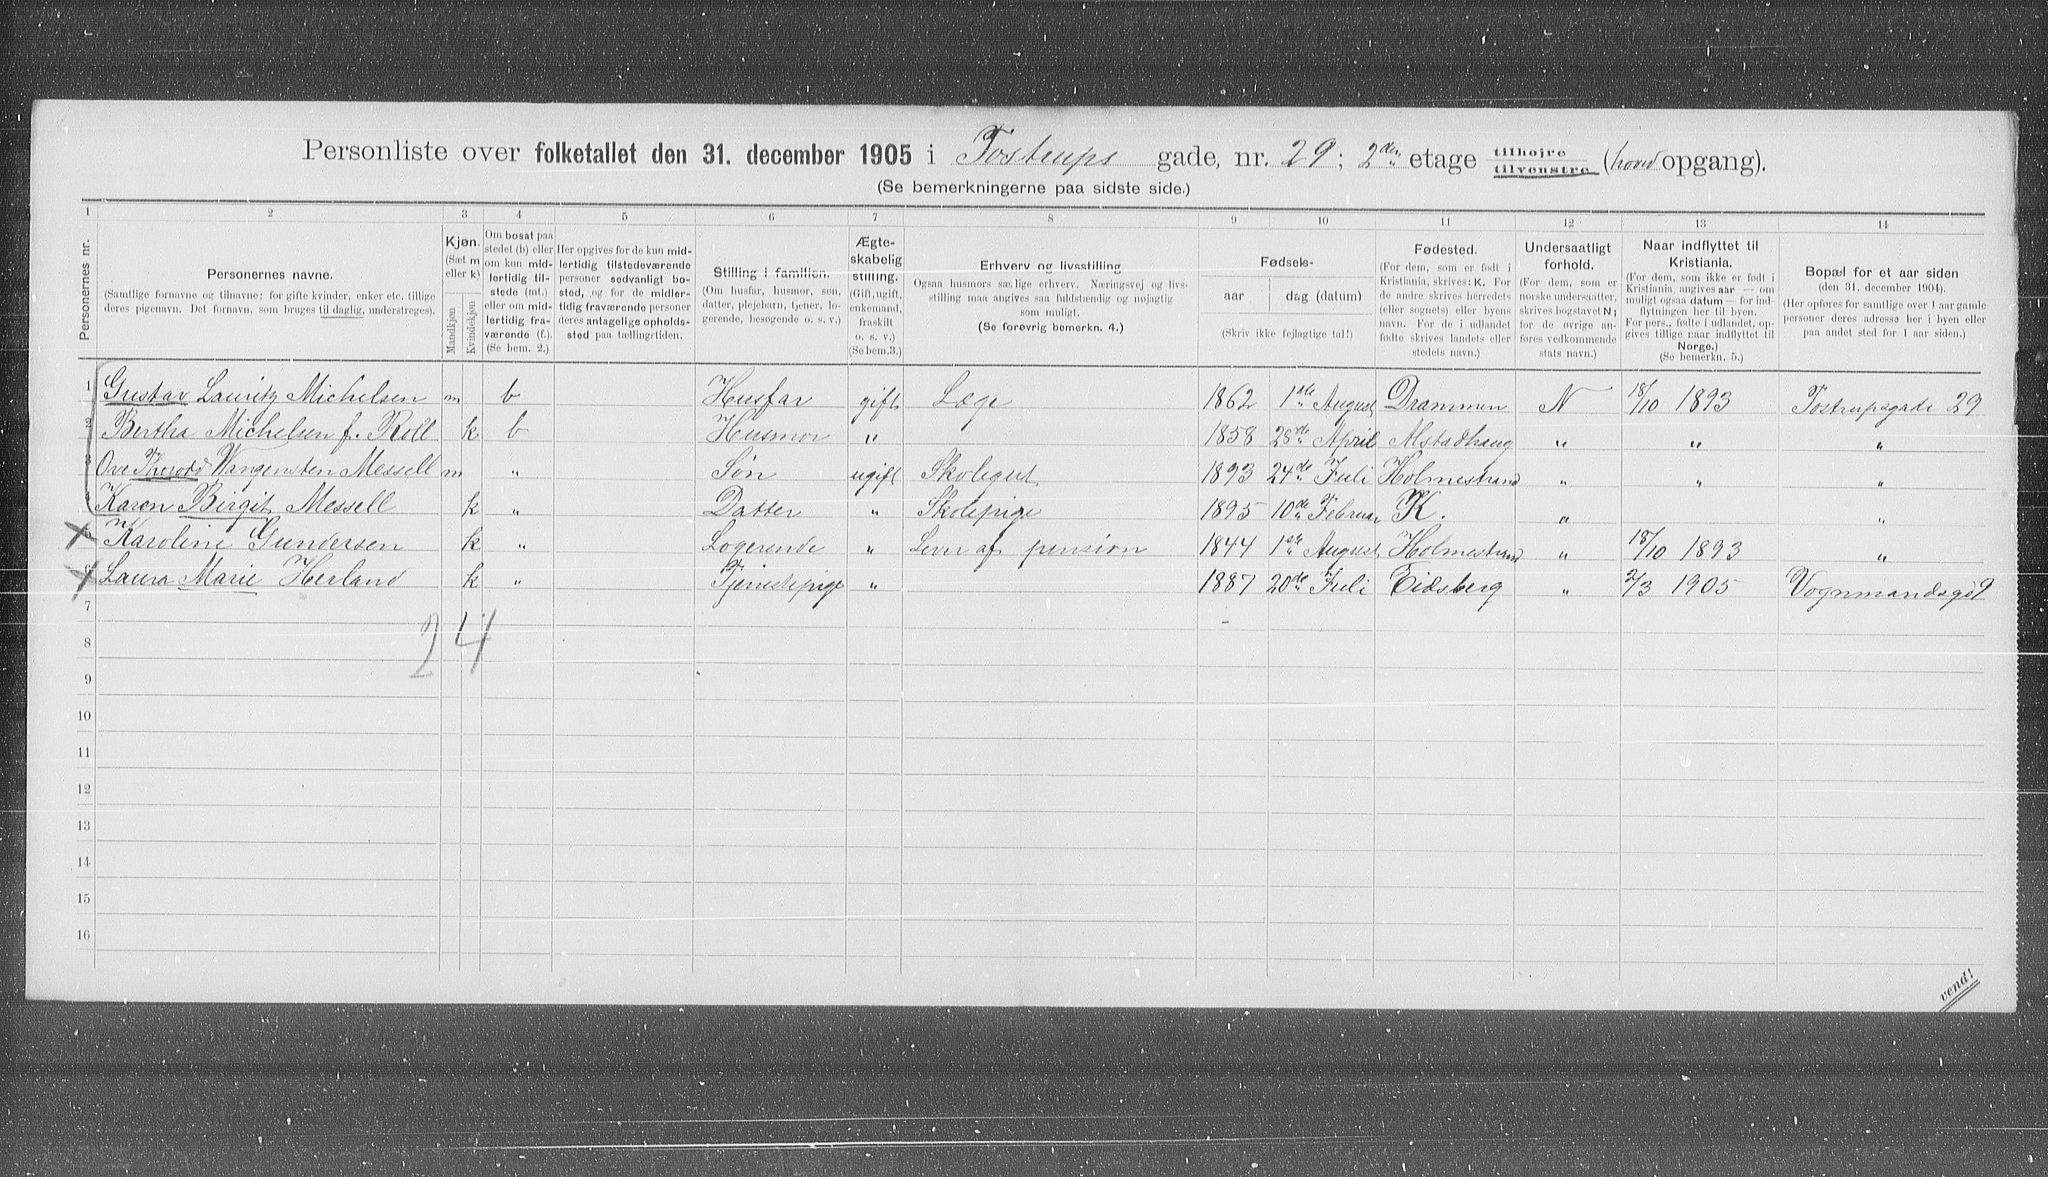 Personliste over folketallet den 31. december 1905 i Tostrups gade, nr. 29; 2den etage tilhøjre tilvenstre (hoved opgang).
(Se bemerkningerne paa sidste side.)
1 2 3 4 5 6 7 8 9 10 11 12 13 14
Personernes nr.
Personernes navne.
(Samtlige fornavne og tilnavne; for gifte kvinder, enker etc. tillige deres pigenavn. Det fornavn, som bruges til daglig, understreges).
Kjøn.
(Sæt m eller k)
Mandkjøn
Kvindekjøn
Om bosat paa stedet (b) eller om kun midlertidig tilstede (mt.) eller om midlertidig fraværende (f.). (Se bem. 2.)
Her opgives for de kun midlertidig tilstedeværende personer sedvanligt bosted, og for de midlertidig fraværende personer deres antagelige opholdssted paa tællingstiden.
Stilling i familien.
(Om husfar, husmor, søn, datter, plejebarn, tjener, logerende, besøgende o. s. v.)
Ægteskabelig stilling.
(Gift, ugift, enkemand, fraskilt o. s. v.)
(Se bem. 3.)
Erhverv og livsstilling.
Ogsaa husmors særlige erhverv. Næringsvej og livsstilling maa angives saa fuldstændig og nøjagtig som muligt.
(Se forøvrig bemerkn. 4.)
Fødsels-
aar
dag (datum)
(Skriv ikke fejlagtige tal!)
Fødested.
(For dem, som er født i Kristiania, skrives: K. For de andre skrives herredets (eller sognets) eller byens navn. For de i udlandet fødte skrives landets eller stedets navn.)
Undersaatligt forhold.
(For dem, som er norske undersaatter, skrives bogstavet N; for de øvrige anføres vedkommende stats navn.)
Naar indflyttet til Kristiania.
(For dem, som ikke er født i Kristiania, angives aar — om muligt ogsaa datum — for indflytningen her til byen. For pers., fødte i udlandet, opgives tillige naar indflyttet til Norge.)
(Se bemerkn. 5.)
Bopæl for et aar siden
(den 31. december 1904).
(Her opføres for samtlige over 1 aar gamle personer deres adresse her i byen eller paa andet sted for 1 aar siden.)
1 Gustav Lauritz Michelsen m b Husfar gift Læge 1862 1ste August Drammen N 18/10 1893 Tostrupsgade 29
2 Bertha Michelsen f. Roll k b Husmor " 1858 28de April Alstadhaug " " "
3 Ove Thorodd Wangensten Messell m " Søn ugift Skolegut 1893 24de Juli Holmestrand " " "
4 Karen Birgit Messell k " Datter " Skolepige 1895 10de Februar K. " "
5 Karoline Gundersen k " Logerende " Lever af pension 1844 1ste August Holmestrand " 18/10 1893 "
6 Laura Marie Herland k " Tjenestepige " 1887 20de Juli Eidsberg " 2/3 1905 Vognmandsgd 9
7
2 4
8
9
10
11
12
13
14
15
16
vend!